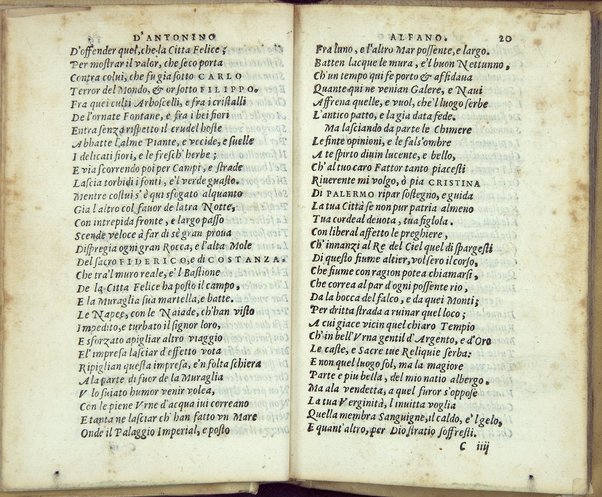 D'ANTONINO
D'offender quel, che la Citta Felice;
Per mostrar il valor, che seco porta
Contra colui, che fu gia sotto CARLO
Terror del Mondo, & or sotto FILIPPO.
Fra quei culti Arboscelli, e fra i cristalli
De l'ornate Fontane, e fra i bei fiori
Entra senza rispetto il crudel hoste
Abbatte l'alme Piante, e recide, e suelle
I delicati fiori, e le fresch' herbe;
E via scorrendo poi per Campi, e strade
Lascia torbidi i fonti, e'l verde guasto.
Mentre costui s'è qui sfogato alquanto
Gia l'altro col fauor de latra Notte,
Con intrepida fronte, e largo passo
Scende veloce à far di sè gran proua
Dispregia ogni gran Rocca, e l'alta Mole
Del sacro FIDERICO, e di COSTANZA.
Che tra'l muro reale, e'l Bastione
De la Citta Felice ha posto il campo,
E la Muraglia sua martella, e batte.
Le Napee, con le Naiade, ch'han visto
Impedito, e turbato il signor loro,
E sforzato apigliar altro viaggio
E l'impresa lasciar d'effetto vota
Ripiglian questa impresa, e'n folta schiera
A la parte di fuor de la Muraglia
V lo suiato humor venir volea,
Con le piene Vrne d'acqua iui correano
E tanta ne lasciar ch' han fatto vn Mare
Onde il Palaggio Imperial, e posto
ALFANO. 20
Fra l'uno, e l'altro Mar possente, e largo.
Batten lacque le mura, e'l buon Nettunno,
Ch'un tempo qui fe porto & affidaua
Quante qui ne venian Galere, e Naui
Affrena quelle, e vuol, che'l luogo serbe
L'antico patto, e la gia data fede.
Ma lasciando da parte le Chimere
Le finte opinioni, e le fals'ombre
A te spirto diuin lucente, e bello,
Ch'al tuo caro Fattor tanto piacesti
Riuerente mi volgo, ò pia CRISTINA
Di PALERMO ripar sostegno, e guida
La tua Città se non pur patria almeno
Tua cordeal deuota, tua figlola.
Con liberal affetto le preghiere,
Ch'innanzi al Re del Ciel quel di spargesti
Di questo fiume altier, volsero il corso,
Che fiume con ragion potea chiamarsi,
Che correa al par d'ogni possente rio,
Da la bocca del falco, e da quei Monti;
Per dritta strada a ruinar quel loco;
A cui giace vicin quel chiaro Tempio
Ch'in bell'Vrna gentil d'Argento, e d'Oro
Le caste, e Sacre tue Reliquie serba:
E non quel luogo sol, ma la magiore
Parte e piu bella, del mio natio albergo.
Ma a la vendetta, a quel furor s'oppose
La tua Verginità, l inuitta voglia
Quella membra Sanguigne, il caldo, e'l gelo,
E quant'altro, per Dio stratio soffresti.
C iiij